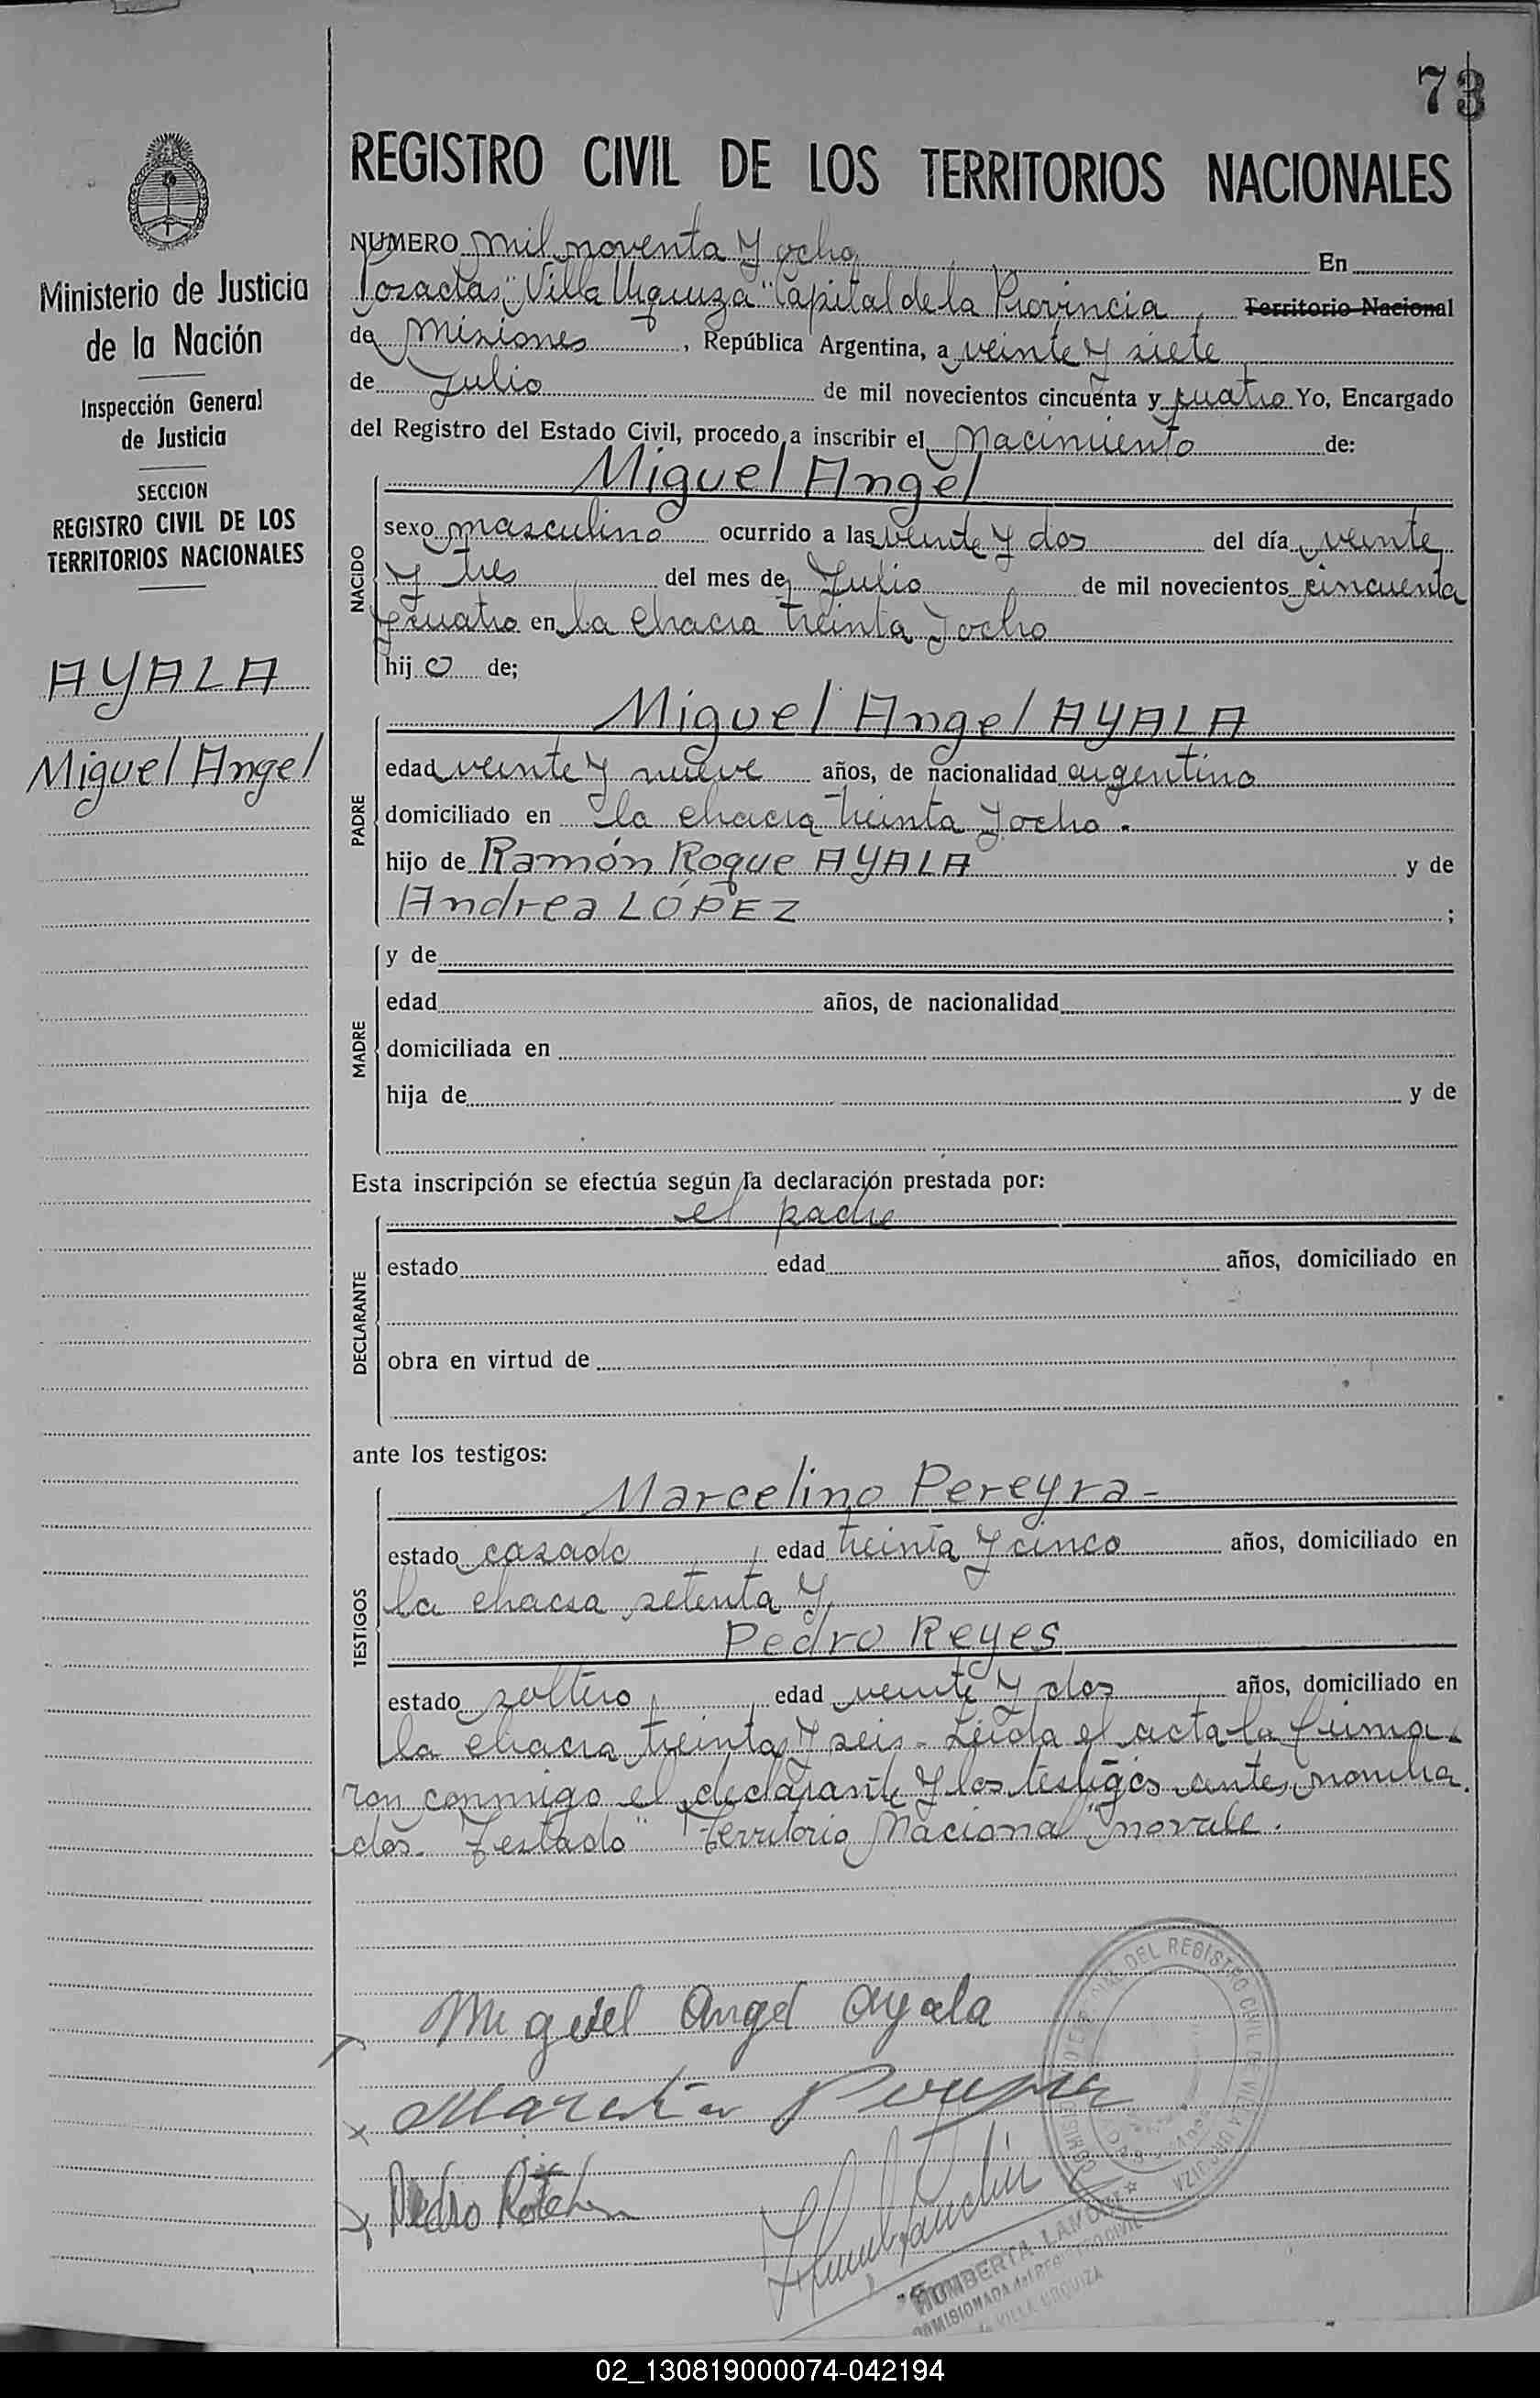 73
REGISTRO CIVIL DE LOS TERRITORIOS NACIONALES
Ministerio de Justicia
de la Nación
Inspección General
de Justicia
SECCION
REGISTRO CIVIL DE LOS
TERRITORIOS NACIONALES
AYALA
Miguel Angel
NUMERO mil noventa y ocho En
Posadas, "Villa Urquiza" Capital de la Provincia Territorio Nacional
de Misiones, República Argentina, a veinte y siete
de Julio de mil novecientos cincuenta y cuatro Yo, Encargado
del Registro del Estado Civil, procedo a inscribir el Nacimiento de:
NACIDO
Miguel Angel
sexo masculino ocurrido a las veinte y dos del día veinte
y tres del mes de Julio de mil novecientos cincuenta
y cuatro en la chacra treinta y ocho
hijo de;
PADRE
Miguel Angel AYALA
edad veinte y nueve años, de nacionalidad argentino
domiciliado en la chacra treinta y ocho.
hijo de Ramón Roque AYALA y de
Andrea LÓPEZ ;
MADRE
y de
edad años, de nacionalidad
domiciliada en
hija de y de
Esta inscripción se efectúa según la declaración prestada por:
DECLARANTE
el padre
estado edad años, domiciliado en
obra en virtud de
ante los testigos:
TESTIGOS
Marcelino Pereyra-
estado casado, edad treinta y cinco años, domiciliado en
la chacra setenta y
Pedro Reyes
estado soltero, edad veinte y dos años, domiciliado en
la chacra treinta y seis- Leída el acta la firma-
ron conmigo el declarante y los testigos antes nombra-
dos- Testado "Territorio Nacional" no vale.
Miguel Angel Ayala
Pedro
DEL REGISTRO CIVIL DE VILLA URQUIZA
HUMBERTA
COMISIONADA del REGISTRO CIVIL
de VILLA URQUIZA
02_130819000074-042194